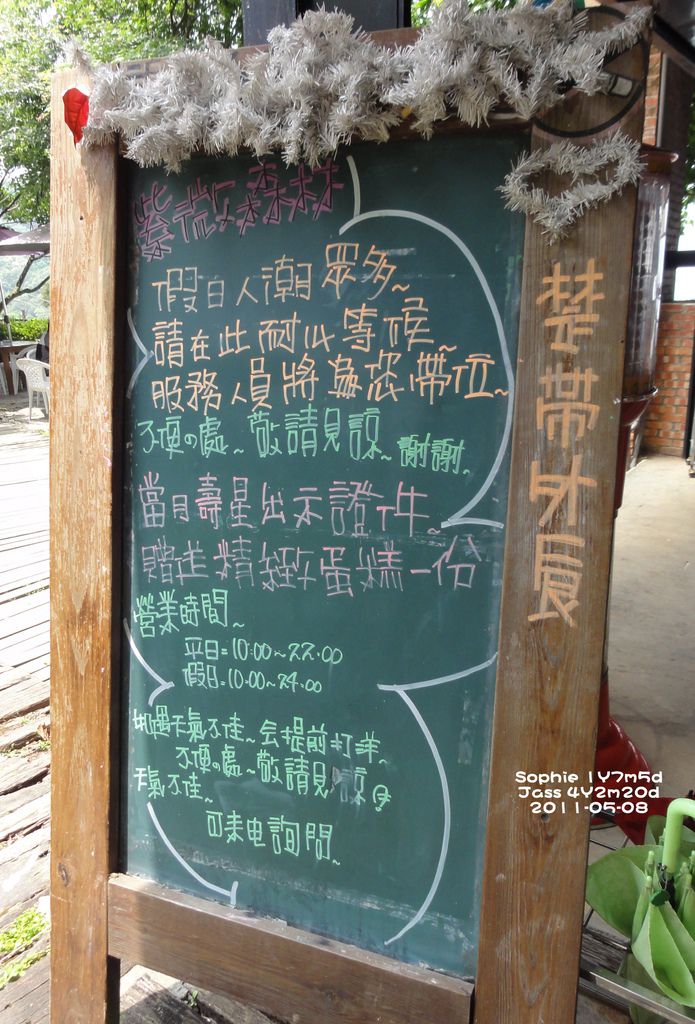 紫微森林
假日人潮眾多~
請在此耐心等候~
服務人員將為您帶位~
不便の處~敬請見諒~謝謝~
當月壽星出示證件~
贈送精緻蛋糕一份
營業時間~
平日=10:00~22:00
假日=10:00~24:00
如遇天氣不佳~会提前打烊~
不便の處~敬請見諒
天氣不佳~
可來电詢問~
禁帶外食
Sophie 1Y7m5d
Jass 4Y2m20d
2011-05-08